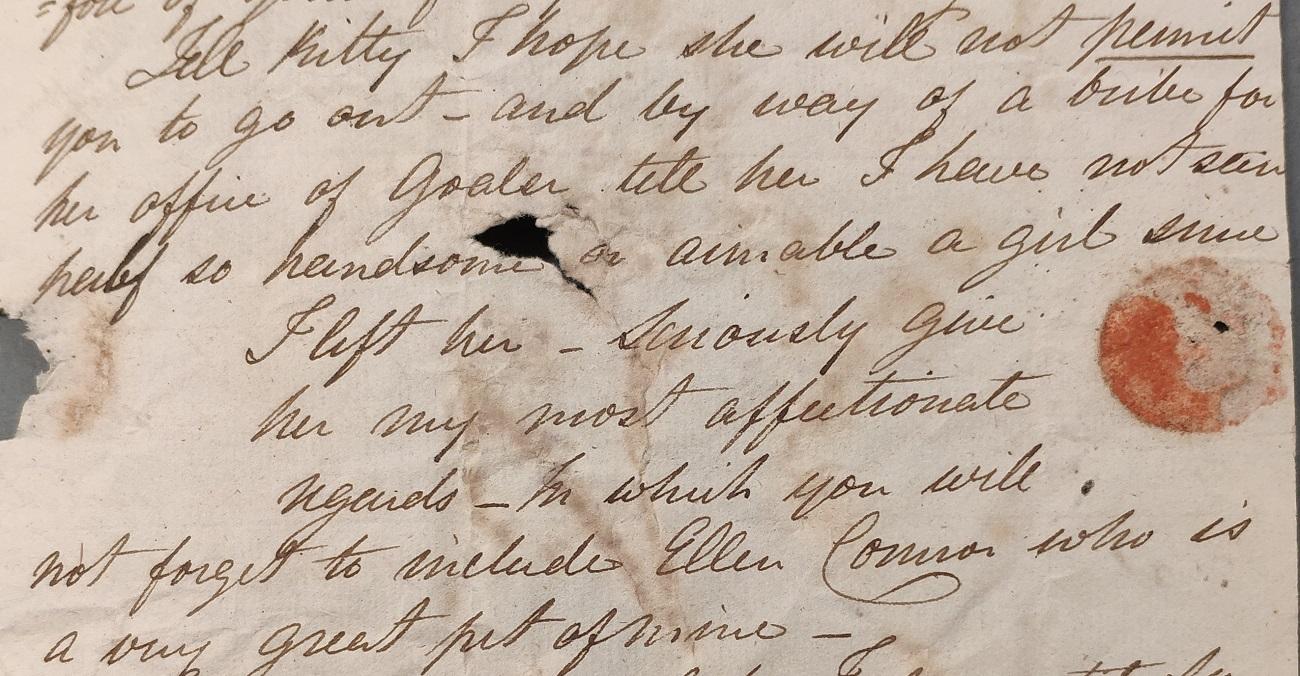 Tell Kitty I hope she will not permit
you to go out - and by way of a bribe for
her office of Goaler tell her I have not seen
half so handsome or aimable a girl since
I left her - Seriously give
her my most affectionate
regards - In which you will
not forget to include Ellen Connor who is
a very great pet of mine -